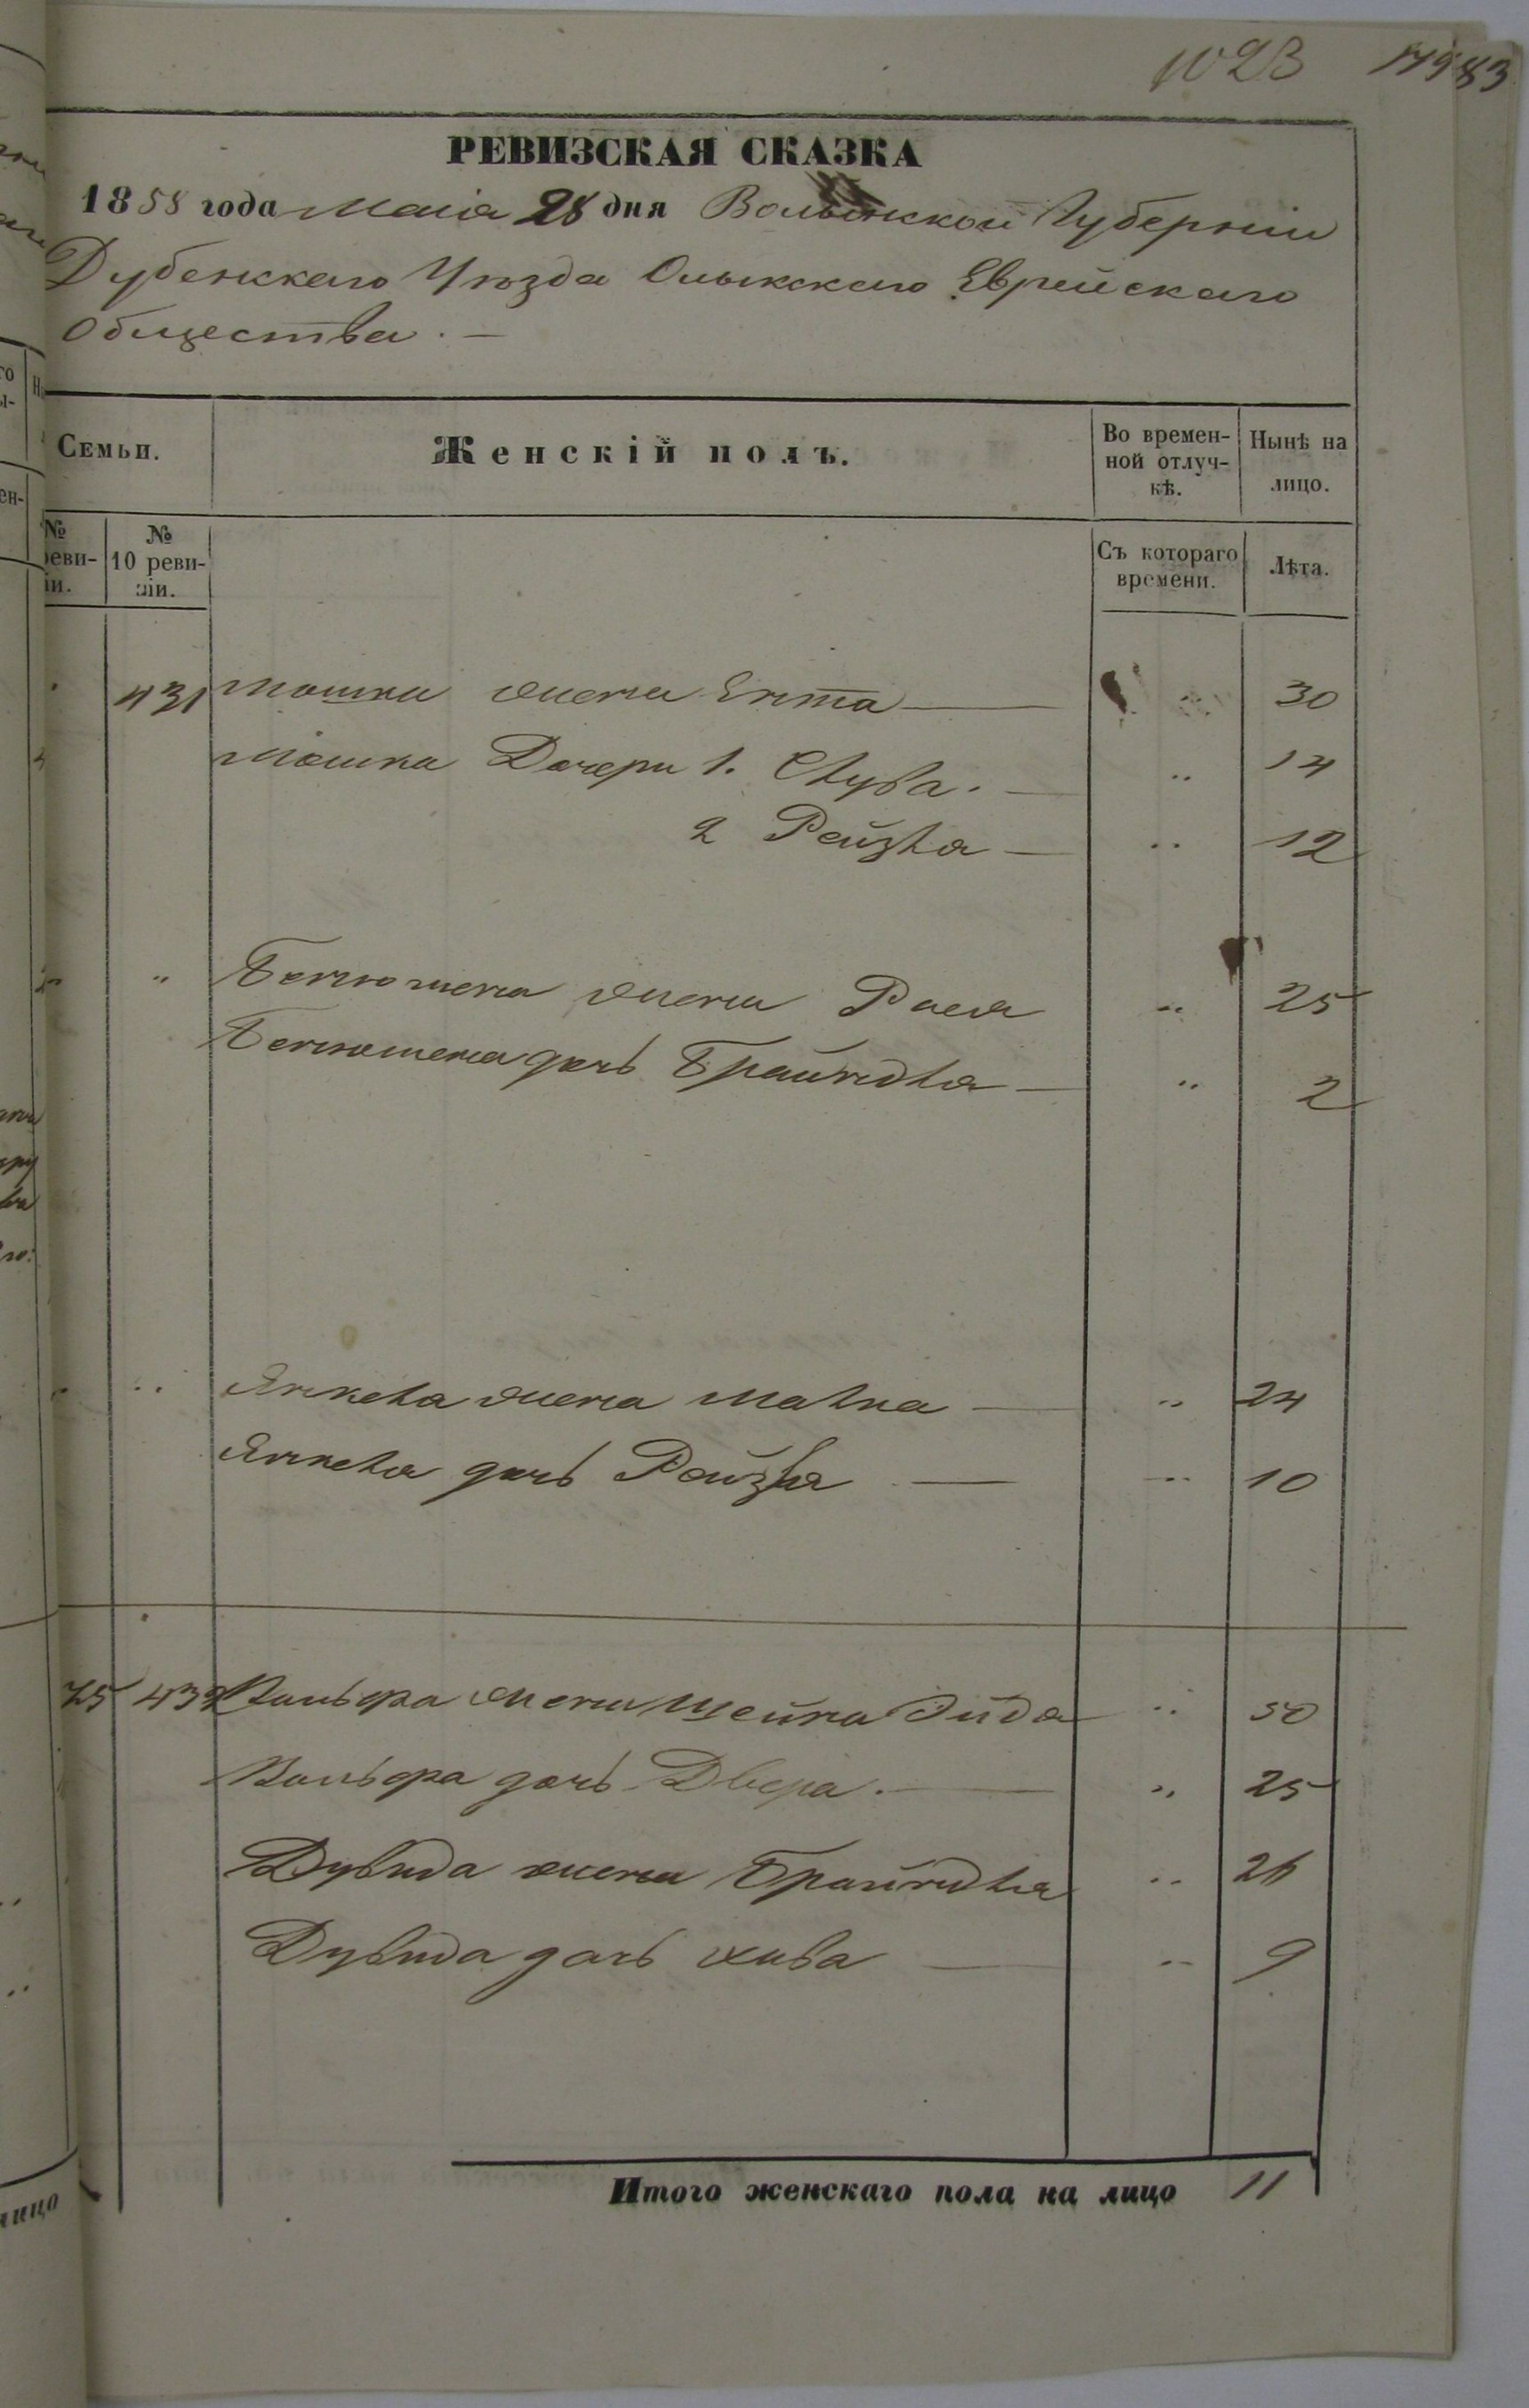 1023 1983
РЕВИЗСКАЯ СКАЗКА
1858 года Маія 28 дня Волынской Губерніи
Дубенскаго Уѣзда Олыкскаго Еврейскаго
Общества. —
Семьи. Женскій полъ. Во времен- Нынѣ на
ной отлуч- лицо.
кѣ.
№ № Съ котораго Лѣта.
реви- 10 реви- времени.
іи. зіи.
431 Мошка жена Ента — „ 30
Мошка Дочери 1. Люба. — „ 14
2 Рейзля — „ 12
„ Бенюмена жена Рася „ 25
Бенюмена дочь Брайндля — „ 2
„ Янкеля жена Малка — „ 24
Янкеля дочь Рейзля — „ 10
75 432 Вольфа жена Шейна Эйдя „ 50
Вольфа дочь Двера. — „ 25
Дувида жена Брайндля „ 26
Дувида дочь Хива — „ 9
Итого женскаго пола на лицо 11